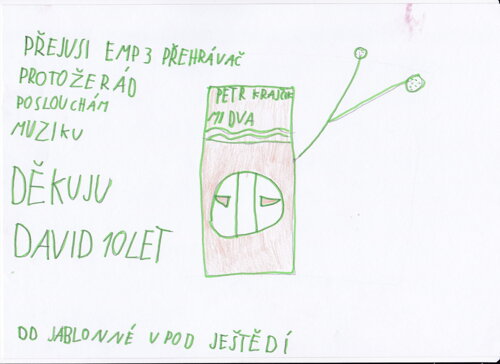 PŘEJUSI EMP3 PŘEHRÁVAČ
PROTOŽERÁD
POSLOUCHÁM
MUZIKU
DĚKUJU
DAVID 10LET
PETR KRAJČIK
MI DVA
OD JABLONNÉ V POD JEŠTĚDÍ